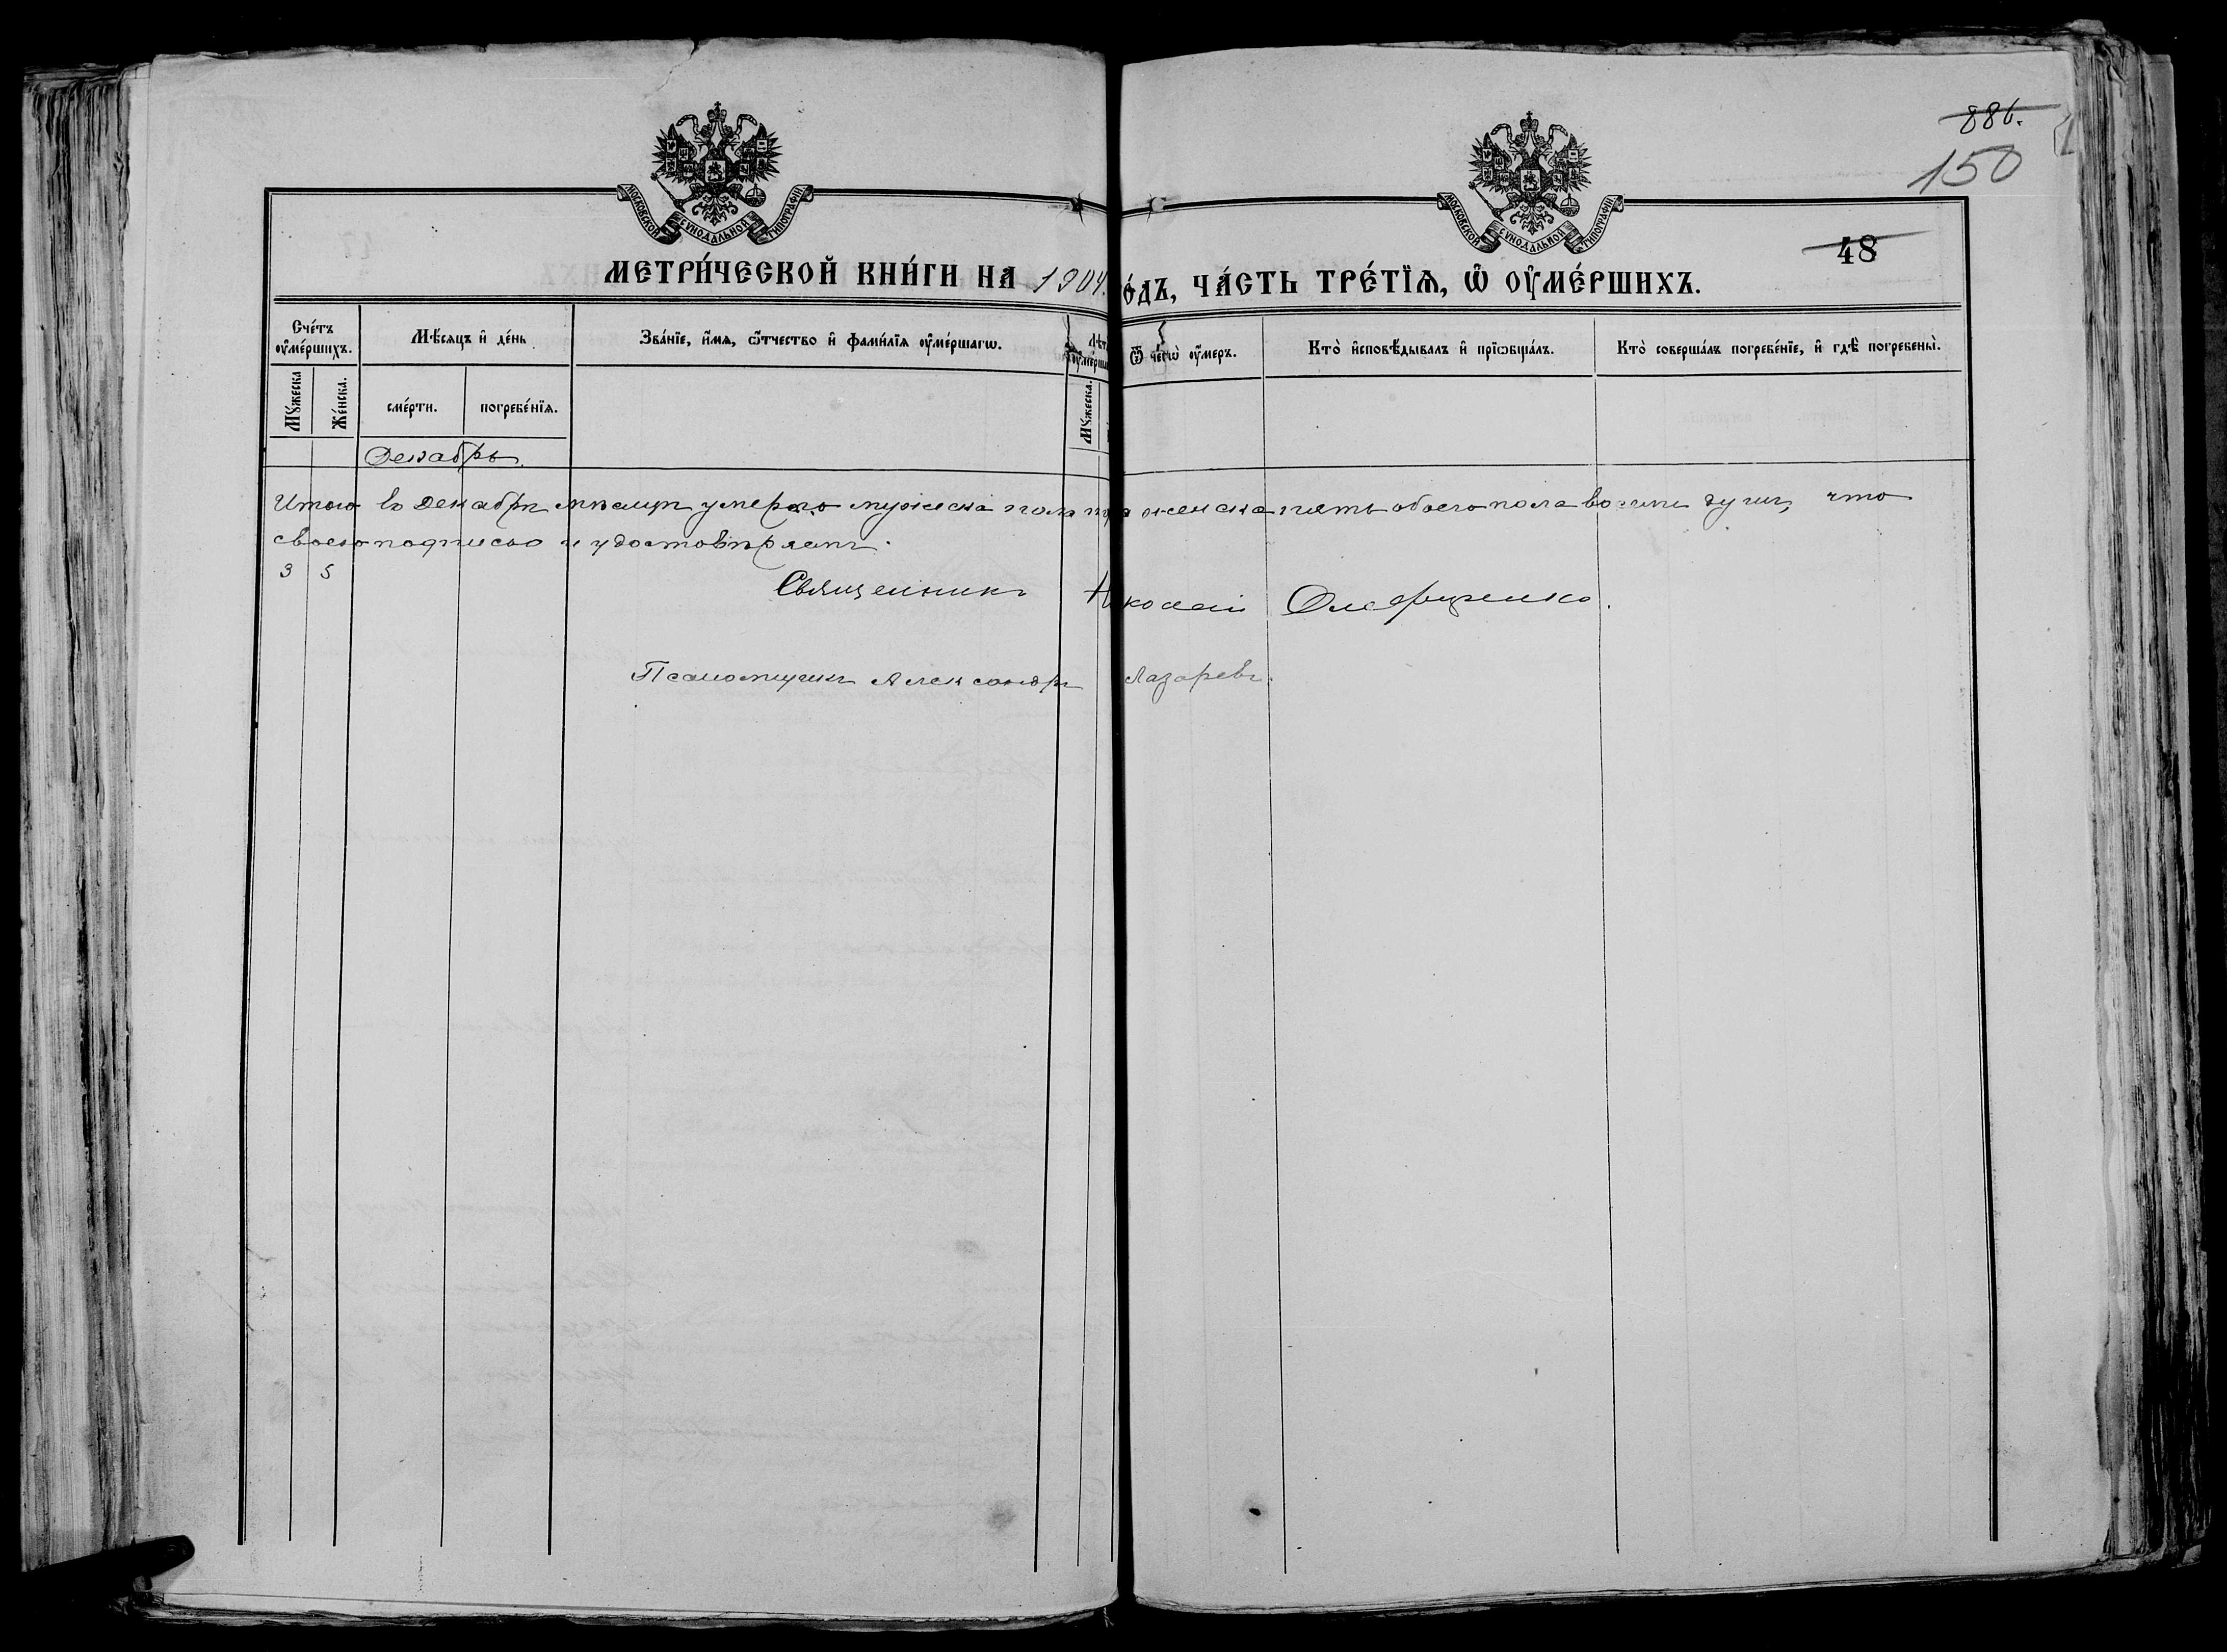 886.
150
МОСКОВСКОЙ СУНОДАЛЬНОЙ ТИПОГРАФІИ
МОСКОВСКОЙ СУНОДАЛЬНОЙ ТИПОГРАФІИ
48
МЕТРИ́ЧЕСКОЙ КНИ́ГИ НА 1904 го́дъ, ЧА́СТЬ ТРЕ́ТЇѦ, Ѡ҆ ОУ҆МЕ́РШИХЪ.
Сче́тъ оу҆ме́ршихъ.
Мѣ́сяцъ и҆ де́нь
Зва́нїе, и҆́мя, ѻ҆́тчество и҆ фами́лїя оу҆ме́ршагѡ.
Лѣт
оу҆ме́рша
Ѿ чегѡ̀ оу҆́меръ.
Кто̀ и҆сповѣ́дывалъ и҆ прїѡбща́лъ.
Кто̀ соверша́лъ погребе́нїе, и҆ гдѣ̀ погребены̀.
Мꙋ́жеска
Же́нска.
сме́рти.
погребе́нїя.
Мꙋ́жеска.
Декабрь.
Итого въ Декабрѣ мѣсяцѣ умерло мужеска пола три женска пять обоего пола восемь душъ, что
своею подписью и удостовѣряемъ.
3 5
Священникъ Николай
Псаломщикъ Александръ Лазаревъ.